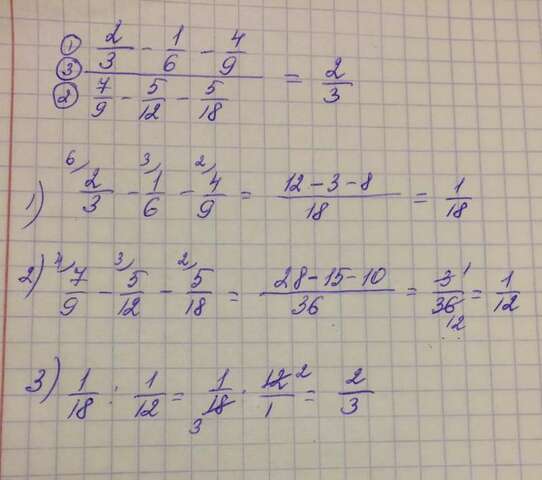 ① 2/3 - 1/6 - 4/9
③ = 2/3
② 7/9 - 5/12 - 5/18
1) 6) 2/3 - 3) 1/6 - 2) 4/9 = 12-3-8/18 = 1/18
2) 4) 7/9 - 3) 5/12 - 2) 5/18 = 28-15-10/36 = 3 1/36 12 = 1/12
3) 1/18 : 1/12 = 1/18 3 · 12 2/1 = 2/3